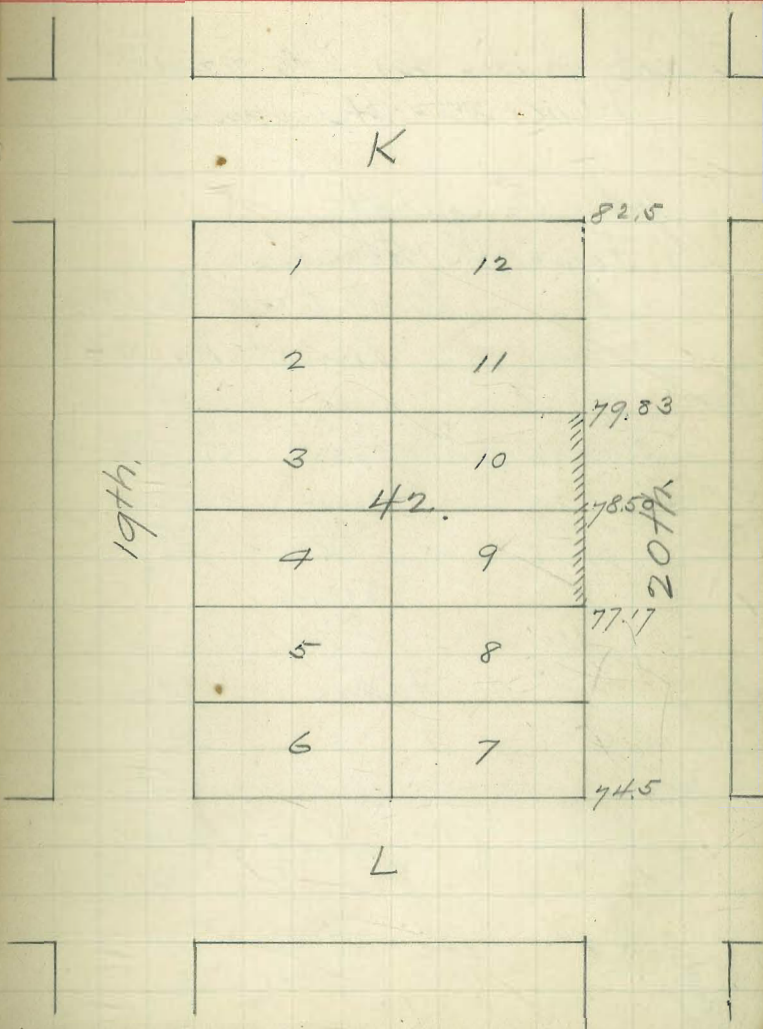 K
82.5
1 12
2 11
79.83
3 10
19th.
42.
78.50
20th.
4 9
77.17
5 8
6 7
74.5
L